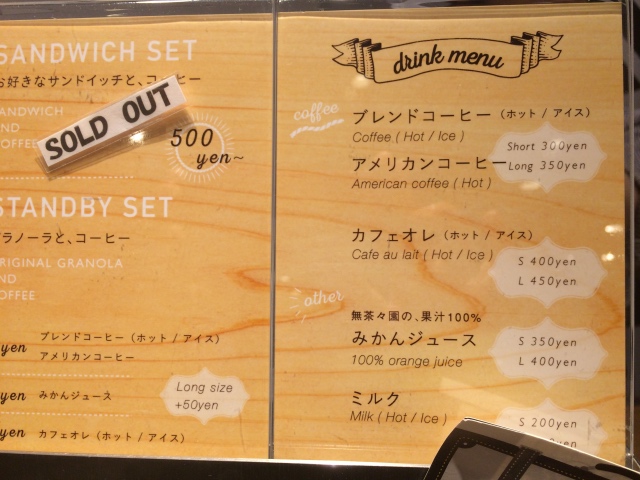 SANDWICH SET
お好きなサンドイッチと、コーヒー
SANDWICH
AND
COFFEE
SOLD OUT
500
yen~
STANDBY SET
グラノーラと、コーヒー
ORIGINAL GRANOLA
AND
COFFEE
yen ブレンドコーヒー（ホット / アイス）
アメリカンコーヒー
yen みかんジュース
Long size
+50yen
yen カフェオレ（ホット / アイス）
drink menu
coffee
ブレンドコーヒー（ホット / アイス）
Coffee ( Hot / Ice )
アメリカンコーヒー
American coffee ( Hot )
Short 300yen
Long 350yen
カフェオレ（ホット / アイス）
Cafe au lait ( Hot / Ice )
S 400yen
L 450yen
other
無茶々園の、果汁100%
みかんジュース
100% orange juice
S 350yen
L 400yen
ミルク
Milk ( Hot / Ice )
S 200yen
yen